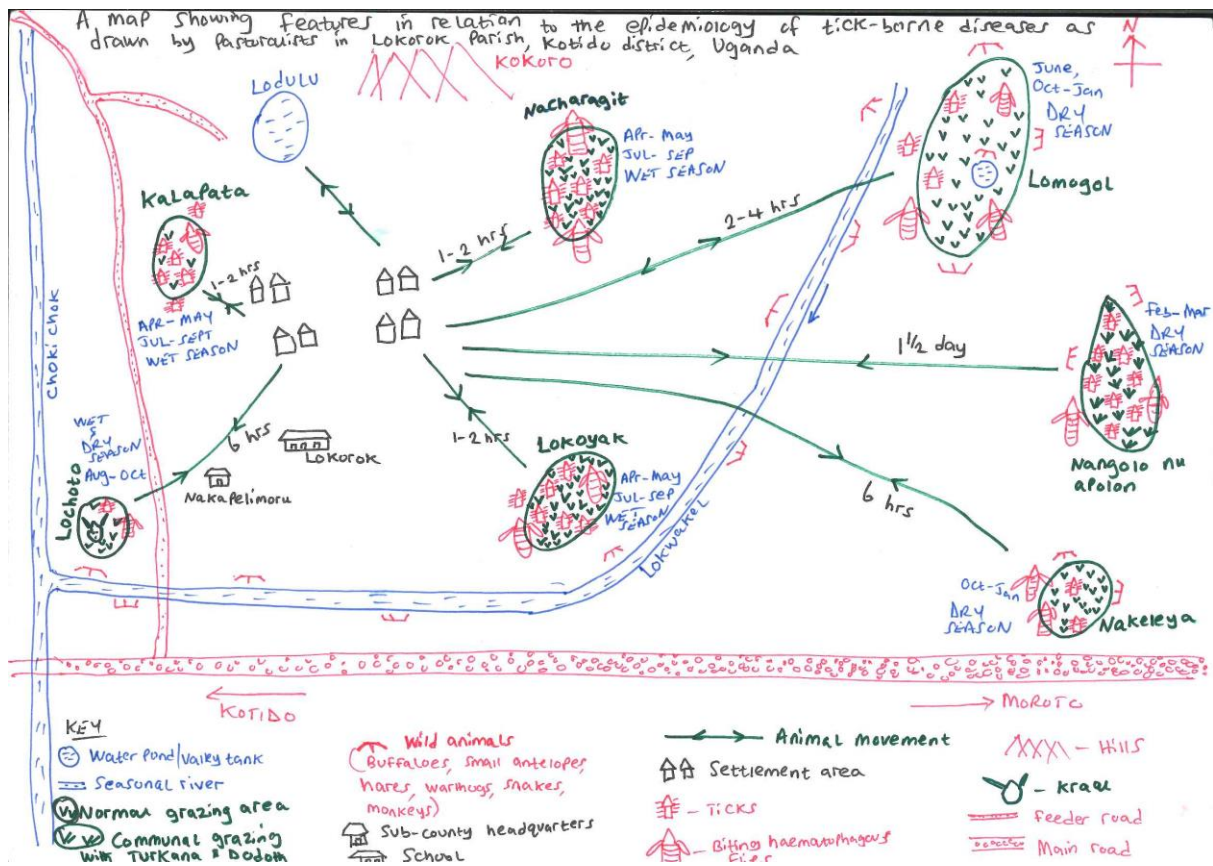 A map showing features in relation to the epidemiology of tick-borne diseases as
drawn by Pastoralists in Lokorok Parish, Kotido district, Uganda
N
KOKORO
LODULU
Nacharagit
Apr-May
JUL-SEP
WET SEASON
June,
Oct-Jan
DRY
SEASON
Lomogol
Kalapata
1-2 hrs
APR-MAY
JUL-SEPT
WET SEASON
1-2 hrs
2-4 hrs
Choki chok
Feb-Mar
DRY
SEASON
1 1/2 day
Nangolo nu
apolon
WET
&
DRY
SEASON
Aug-Oct
6 hrs
LOKOROK
Nakapelimoru
Lochoto
1-2 hrs
Lokoyak
Apr-May
JUL-SEP
WET
SEASON
Lokwakel
6 hrs
Oct-Jan
DRY
SEASON
Nakeleya
KOTIDO
MOROTO
KEY
Water Pond/valley tank
Seasonal river
Normal grazing area
Communal grazing
with Turkana & Dodoth
Wild animals
(Buffaloes, small antelopes,
hares, warthogs, snakes,
monkeys)
Sub-county headquarters
School
Animal movement
Settlement area
- Ticks
- Biting haematophagous
Flies
- Hills
- Kraal
Feeder road
Main road